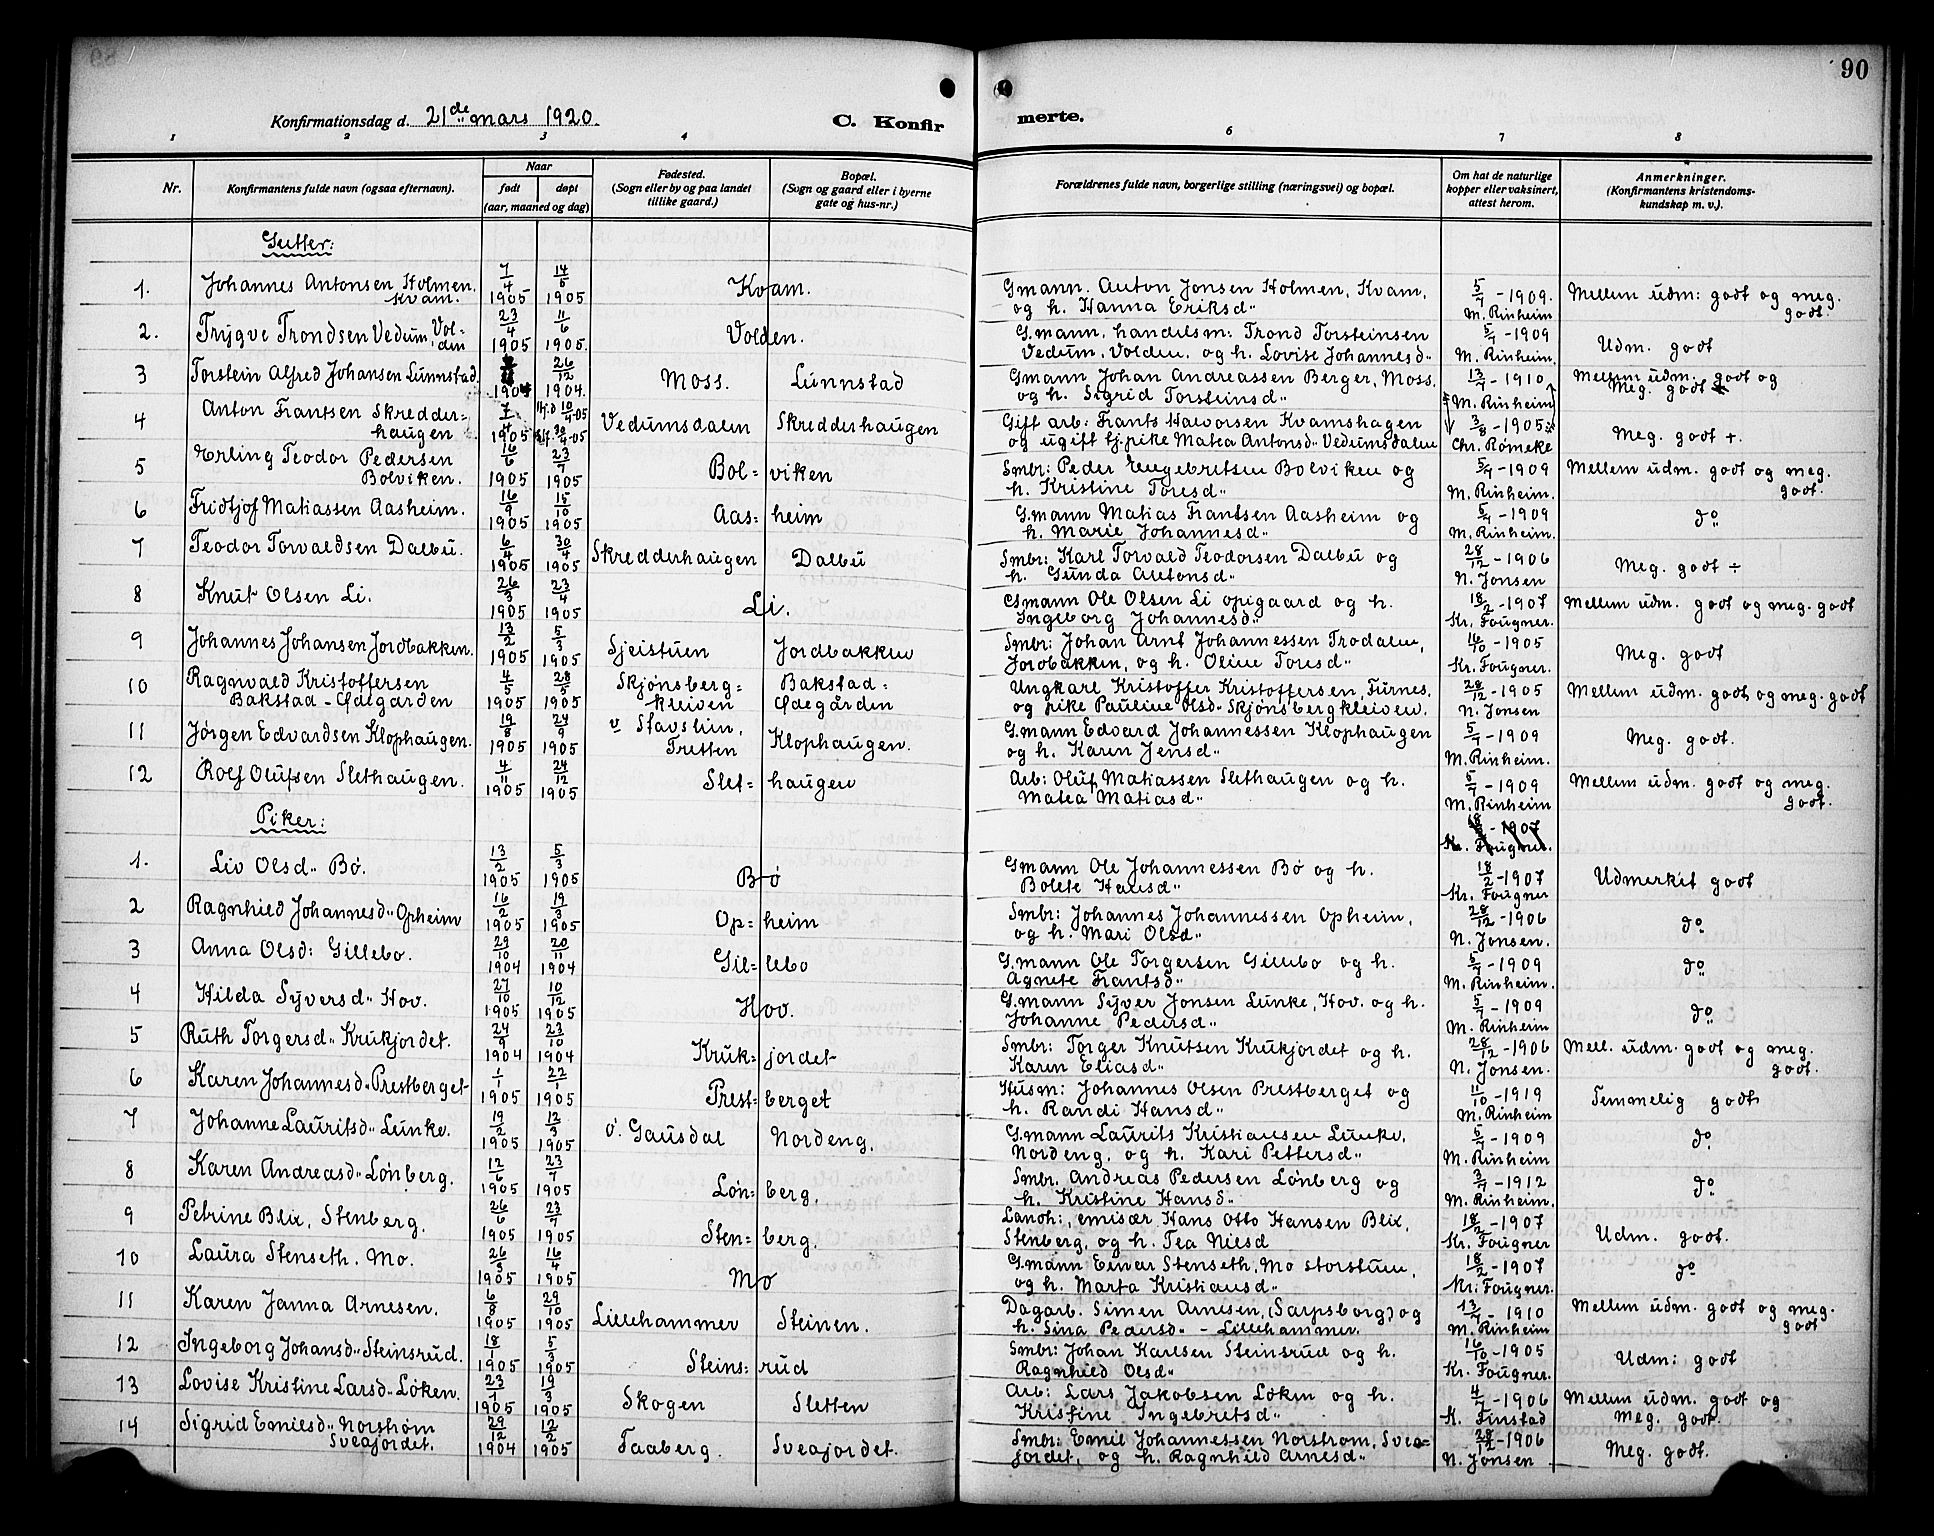 90
Konfirmationsdag d. 21de mars 1920.
C. Konfir
merte.
1 2 3 4 6 7 8
Nr.
Konfirmantens fulde navn (ogsaa efternavn).
Naar
født døpt
(aar, maaned og dag)
Fødested.
(Sogn eller by og paa landet
tillike gaard.)
Bopæl.
(Sogn og gaard eller i byerne
gate og hus-nr.)
Forældrenes fulde navn, borgerlige stilling (næringsvei) og bopæl.
Om hat de naturlige
kopper eller vaksinert,
attest herom.
Anmerkninger.
(Konfirmantens kristendoms-
kundskap m. v.).
Gutter:
1. Johannes Antonsen Holmen. Kvam. 7/4 1905 14/5 1905 Kvam. Gmann. Anton Jonsen Holmen, Kvam, 5/7 - 1909. Mellem udm: godt og meg.
og h. Hanna Eriksd" M. Rinheim godt.
2. Trygve Trondsen Vedum, Volden 23/4 1905 11/6 1905. Volden. G.mann, handelsm: Trond Torsteinsen 5/7 - 1909 Udm. godt
Vedum, Volden, og h. Lovise Johannesd" M. Rinheim.
3 Torstein Alfred Johansen Lunnstad 1904 26/12 1904. Moss. Lunnstad Gmann Johan Andreassen Berger, Moss. 13/7 - 1910 Mellem udm. godt og
og h. Sigrid Torsteinsd" M. Rinheim Meg. godt
4 Anton Frantsen Skredder-haugen 7/4 1905 10/4-05 30/4-05 Vedumsdalen Skredderhaugen Gift arb: Frants Halvorsen Kvamshagen 3/8 - 1905 Meg. godt +.
og ugift tj.pike Matea Antonsd" Vedumsdalen Chr. Rømeke
5 Erling Teodor Pedersen Bolviken. 16/6 1905 23/7 1905 Bol= viken Smbr: Peder Engebretsen Bolviken og 5/7 - 1909 Mellem udm. godt og meg.
h. Kristine Toresd" M. Rinheim. godt.
6 Fridtjof Matiassen Aasheim. 16/9 1905 15/10 1905 Aas= heim G.mann Matias Frantsen Aasheim og 5/7 - 1909 do
h. Marie Johannesd" M. Rinheim.
7 Teodor Torvaldsen Dalbu. 6/4 1905 30/4 1905 Skredderhaugen Dalbu Smbr: Karl Torvald Teodorsen Dalbu og 28/12 - 1906 Meg. godt ÷
h. Gunda Antonsd" N. Jonsen
8 Knut Olsen Li. 26/3 1905 23/4 1905 Li. Gmann Ole Olsen Li opigaard og h. 18/2 - 1907 Mellem udm. godt og meg. godt
Ingeborg Johannesd" Kr. Fougner.
9 Johannes Johansen Jordbakken. 13/2 1905 5/3 1905 Sjeistuen Jordbakken Smbr: Johan Arnt Johannessen Trodalen, 16/10 - 1905 Meg. godt
Jordbakken, og h. Oline Toresd" Kr. Fougner.
10 Ragnvald Kristoffersen Bakstad-Ødegården 4/5 1905 28/5 1905 Skjønsberg= kleiven Bakstad= Ødegården Ungkarl Kristoffer Kristoffersen, Furnes, 28/12 - 1905 Mellem udm. godt og meg. godt
og pike Pauline Olsd" Skjønsbergkleiven. N. Jonsen
11 Jørgen Edvardsen Klophaugen. 19/8 1905 24/9 1905 v Stavslien, Tretten Klophaugen. G.mann Edvard Johannessen Klophaugen 5/7 - 1909 Meg. godt.
og h. Karen Jensd" M. Rinheim.
12 Rolf Olufsen Slethaugen. 4/11 1905 24/12 1905 Slet= haugen Arb: Oluf Matiassen Slethaugen og h. 5/7 - 1909 Mellem udm. godt og meg.
Matea Matiasd" M. Rinheim godt.
Piker:
18/2 - 1907
Kr. Fougner.
1. Liv Olsd" Bø. 13/2 1905 5/3 1905 Bø Gmann Ole Johannessen Bø og h. 18/2 - 1907 Udmerket godt
Bolete Hansd" Kr. Fougner
2 Ragnhild Johannesd" Opheim 16/2 1905 19/3 1905 Op= heim Smbr: Johannes Johannessen Opheim, 28/12 - 1906 do
og h. Mari Olsd" N. Jonsen.
3 Anna Olsd: Gillebo. 29/10 1904 20/11 1904 Gil= lebo G.mann Ole Torgersen Gillebo og h. 5/7 - 1909 do
Agnete Frantsd" M. Rinheim.
4 Hilda Syversd" Hov. 27/10 1905 10/12 1905 Hov. G.mann Syver Jonsen Lunke, Hov. og h. 5/7 - 1909 do
Johanne Pedersd" M. Rinheim
5 Ruth Torgersd" Krukjordet. 24/9 1904 23/10 1904 Kruk= jordet Smbr: Torger Knutsen Krukjordet og h. 28/12 - 1906 Mell. udm. godt og meg.
Karen Eliasd" N. Jonsen. godt.
6 Karen Johannesd" Prestberget 1/1 1905 22/1 1905 Prest= berget Husm: Johannes Olsen Prestberget og 11/10 - 1919 Temmelig godt
h. Randi Hansd" M. Rinheim
7 Johanne Lauritsd" Lunke. 19/2 1905 12/3 1905 ø. Gausdal Nordeng. G.mann Laurits Kristiansen Lunke, 5/7 - 1909 do
Nordeng, og h. Kari Pettersd" M. Rinheim
8 Karen Andreasd" Lønberg. 12/6 1905 23/7 1905 Løn= berg. Smbr. Andreas Pedersen Lønberg og 3/7 - 1912 do
h. Kristine Hansd" M. Rinheim.
9 Petrine Blix, Stenberg. 26/6 1905 23/7 1905 Sten= berg. Landh:, emisær Hans Otto Hansen Blix, 18/2 - 1907 Udm. godt.
Stenberg, og h. Tea Nilsd Kr. Fougner
10 Laura Stenseth. Mo. 26/3 1905 16/4 1905 Mo G.mann Einar Stenseth, Mo storstuen, 18/2 - 1907 do
og h. Marta Kristiansd" Kr. Fougner.
11 Karen Janna Arnesen. 6/8 1905 29/10 1905 Lillehammer Steinen. Dagarb. Simen Arnesen, (Sarpsborg) og 13/7 - 1910 Mellem udm. godt og meg.
h. Sina Pedersd" - Lillehammer. M. Rinheim godt
12 Ingeborg Johansd" Steinsrud. 18/1 1905 5/3 1905 Steins= rud Smbr: Johan Karlsen Steinsrud og h. 16/10 - 1905 Udm: godt
Ragnhild Olsd" Kr. Fougner.
13 Lovise Kristine Larsd" Løken. 23/1 1905 19/3 1905 Skogen Sletten Arb: Lars Jakobsen Løken og h. 4/7 - 1906 Mellem udm. godt og
Kristine Ingebretsd" K. Finstad Meg. godt.
14 Sigrid Emilsd" Norstrøm Sveajordet. 29/12 1904 12/2 1905 Faaberg. Sveajordet. Smbr: Emil Johannessen Norstrøm, Svea= 28/12 - 1906 Meg. godt.
jordet, og h. Ragnhild Arnesd" N. Jonsen